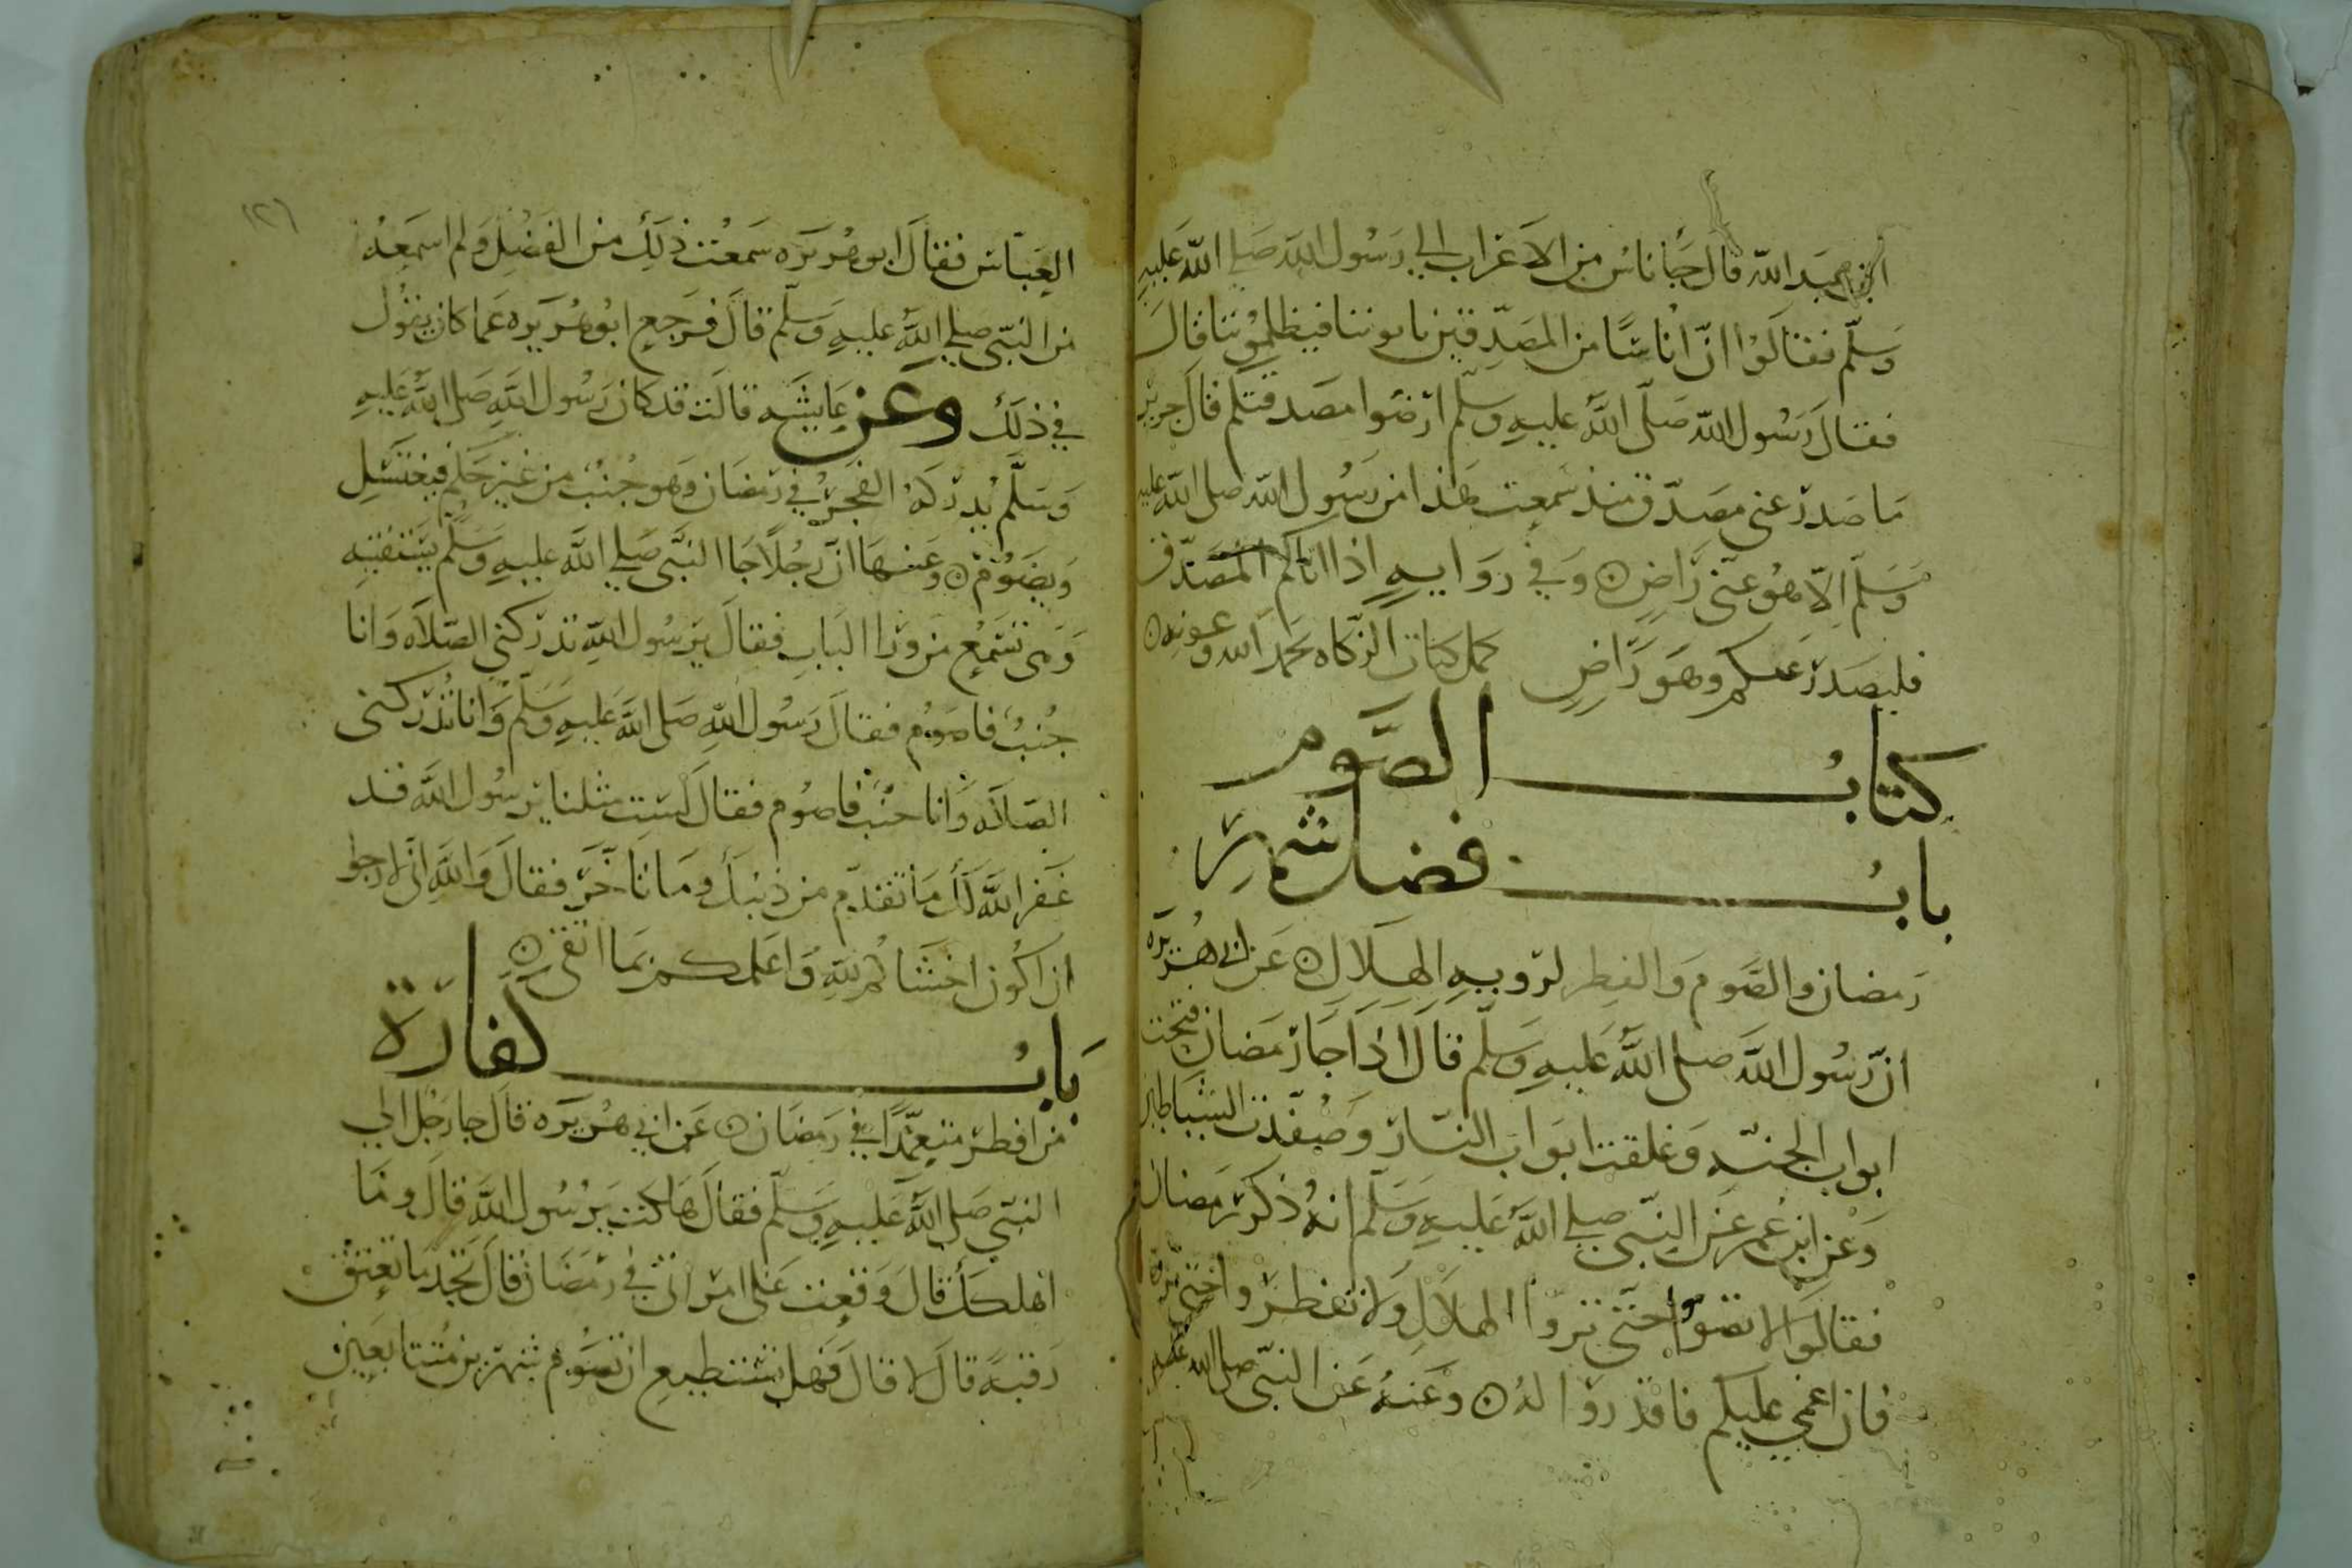 ابن عبد الله قال جا ناس من الاعراب الى رسول الله صلى الله عليه
وسلم فقالوا ان اناسا من المصدقين ياتوننا فيظلموننا قال
فقال رسول الله صلى الله عليه وسلم ارضوا مصدقيكم قال جرير
ما صدر عني مصدق منذ سمعت هذا من رسول الله صلى الله عليه
وسلم الا هو عني راض ۞ وفي رواية اذا اتاكم المصدق
فليصدر عنكم وهو راض كمل كتاب الزكاه بحمد الله وعونه ۞
كتاب الصوم
باب فضل شهر
رمضان والصوم والفطر لروية الهلال ۞ عن ابي هريره
ان رسول الله صلى الله عليه وسلم قال اذا جا رمضان فتحت
ابواب الجنة وغلقت ابواب النار وصفدت الشياطين
وعن ابن عمر عن النبي صلى الله عليه وسلم انه ذكر رمضان
فقال لا تصوموا حتى تروا الهلال ولا تفطروا حتى تروه
فان اغمي عليكم فاقدروا له ۞ وعنه عن النبي صلى الله عليه
١٢٦
العباس فقال ابو هريره سمعت ذلك من الفضل ولم اسمعه
من النبي صلى الله عليه وسلم قال فرجع ابو هريره عما كان يقول
في ذلك وعن عايشه قالت قد كان رسول الله صلى الله عليه
وسلم يدركه الفجر في رمضان وهو جنب من غير حلم فيغتسل
ويصوم ۞ وعنها ان رجلا جا النبي صلى الله عليه وسلم يستفتيه
وهي تسمع من ورا الباب فقال يرسول الله تدركني الصلاه وانا
جنب فاصوم فقال رسول الله صلى الله عليه وسلم وانا تدركني
الصلاه وانا جنب فاصوم فقال لست مثلنا يرسول الله قد
غفر الله لك ما تقدم من ذنبك وما تاخر فقال والله اني لارجوا
ان اكون اخشاكم لله واعلمكم بما اتقي ۞
باب كفارة
من افطر متعمدا في رمضان ۞ عن ابي هريره قال جا رجل الى
النبي صلى الله عليه وسلم فقال هلكت يرسول الله قال وما
اهلكك قال وقعت على امراتي في رمضان قال تجد ما تعتق
رقبة قال لا قال فهل تستطيع ان تصوم شهرين متتابعين